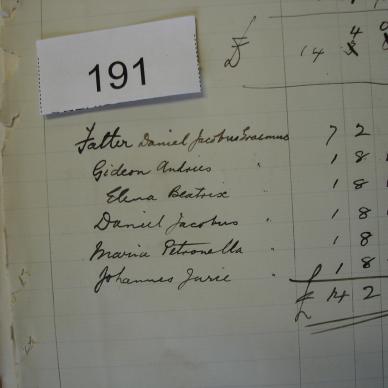 191
£ 14
Falter Daniel Jacobus Erasmus 7 2
Gideon Andries " 1 8
Elena Beatrix 1 8
Daniel Jacobus " 1 8
Maria Petronella " 1 8
Johannes Jurie " 1 8
£ 14 2